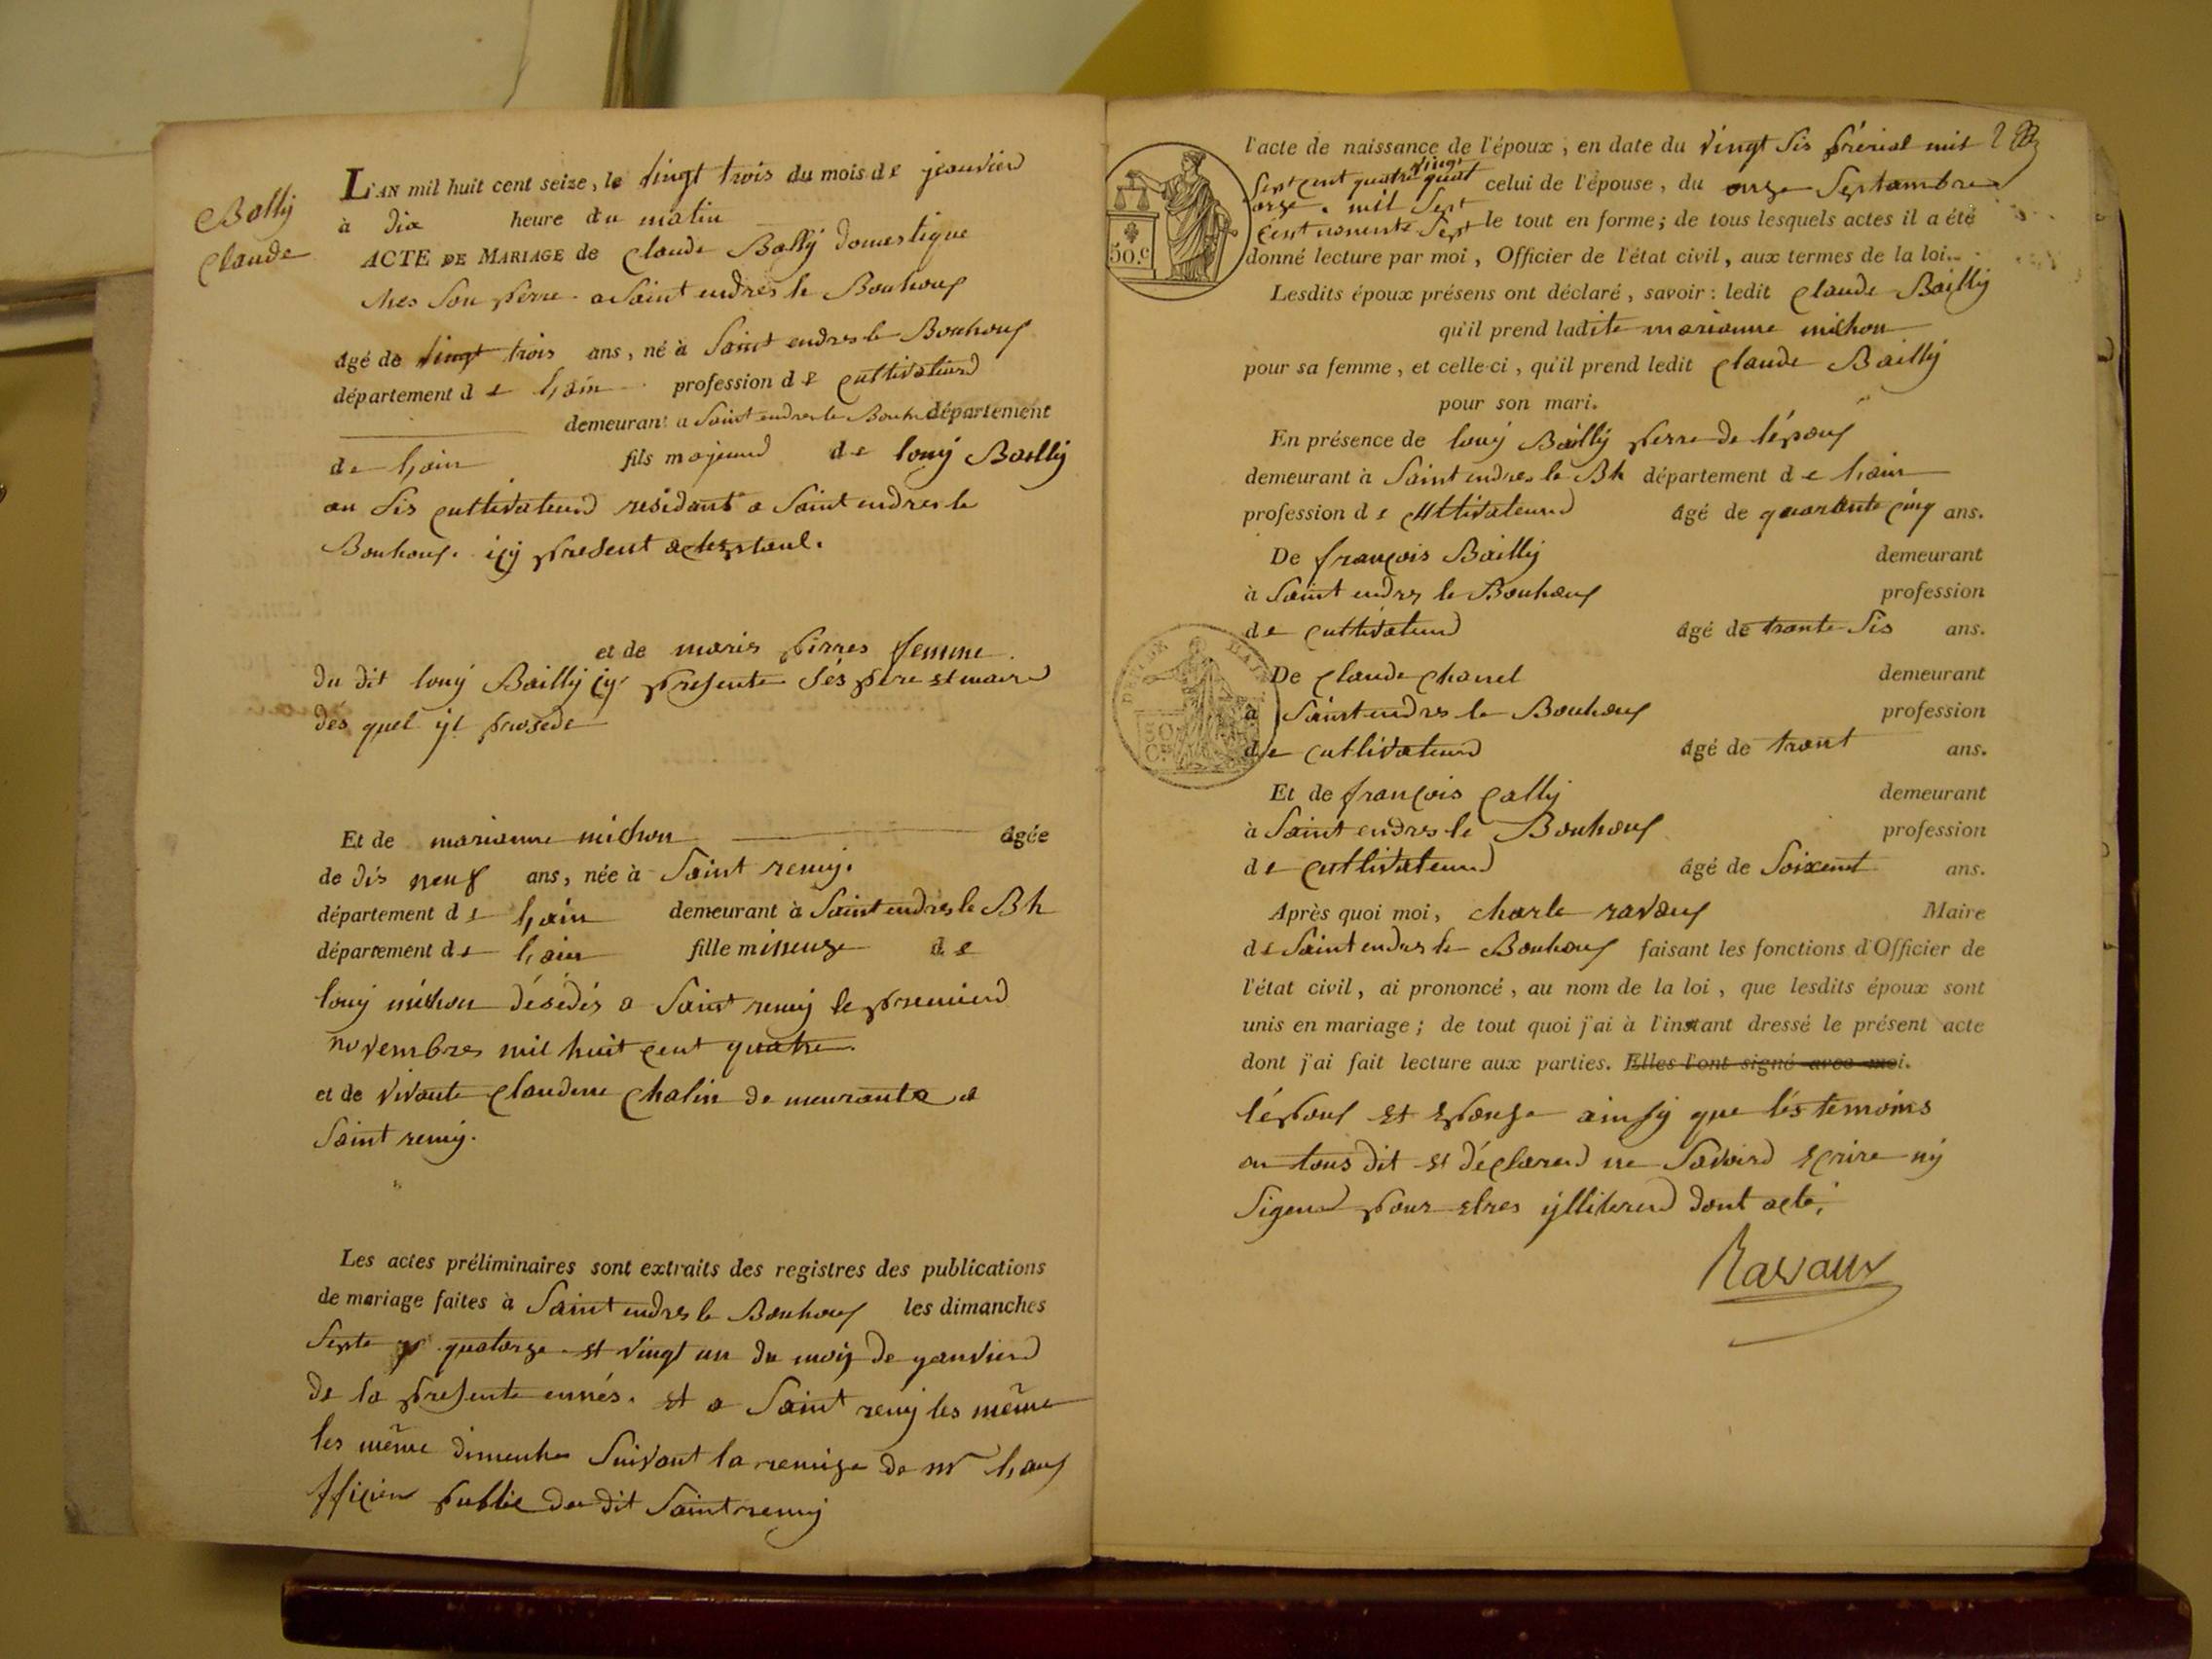 Bally
Claude
L'AN mil huit cent seize, le vingt trois du mois de jeanvierd
à dix heure du matin
ACTE DE MARIAGE de Claude Bally domestique
ches son perre a Saint endres le Bouhouf
âgé de vingt trois ans, né à Saint endres le Bouhouf
département de lain profession de cultivateurd
demeurant a Saint endres le Bouh département
de lain fils majeurd de louy Bailly
an sis cultivateurd residant a Saint endres le
Bouhouf. icy present
et de marie pirres femme
du dit louy Bailly icy presente ses pere et maire
des quel il prosede
Et de marianne michon âgée
de dis neuf ans, née à Saint remy.
département de lain demeurant à Saint endres le Bh
département de lain fille mineure de
louy michon désédés a Saint remy le premierd
novembres mil huit cent quatre.
et de vivante Claudine Chalin demeurante a
Saint remy.
Les actes préliminaires sont extraits des registres des publications
de mariage faites à Saint endres le Bouhouf les dimanches
Septe quatorze et vingt un du moy de janvierd
de la presente ennés. et a Saint remy les même
les même dimenche Suivant la remise de mr
fficier public du dit Saint remy
l'acte de naissance de l'époux, en date du vingt sis prérial mil
vingt
Sept cent quatre quat celui de l'épouse, du onze Septambre
orze. mil Sept le tout en forme; de tous lesquels actes il a été
cent nonente Sept
donné lecture par moi, Officier de l'état civil, aux termes de la loi.
50.c
Lesdits époux présens ont déclaré, savoir: ledit Claude Bailly
qu'il prend ladite marianne michon
pour sa femme, et celle-ci, qu'il prend ledit Claude Bailly
pour son mari.
En présence de louy Bailly perre de lépouf
demeurant à Saint endres le Bh département de lain
profession de cultivateurd âgé de quarante cinq ans.
De françois Bailly demeurant
à Saint endres le Bouhouf profession
de cultivateurd âgé de trante sis ans.
De Claude Chanel demeurant
à Saint endres le Bouhouf profession
de cultivateurd âgé de trant ans.
50
C.
Et de françois Cally demeurant
à Saint endres le Bouhouf profession
de cultivateurd âgé de Soixent ans.
Après quoi moi, charle ravouf Maire
de Saint endres le Bouhouf faisant les fonctions d'Officier de
l'état civil, ai prononcé, au nom de la loi, que lesdits époux sont
unis en mariage; de tout quoi j'ai à l'instant dressé le présent acte
dont j'ai fait lecture aux parties. Elles l'ont signé avec moi.
lépouf et épouse ainsy que lés temoins
on tous dit et déclarerd ne Savoird ecrire ny
Signerd pour etres yllitererd dont acte,
Ravaux